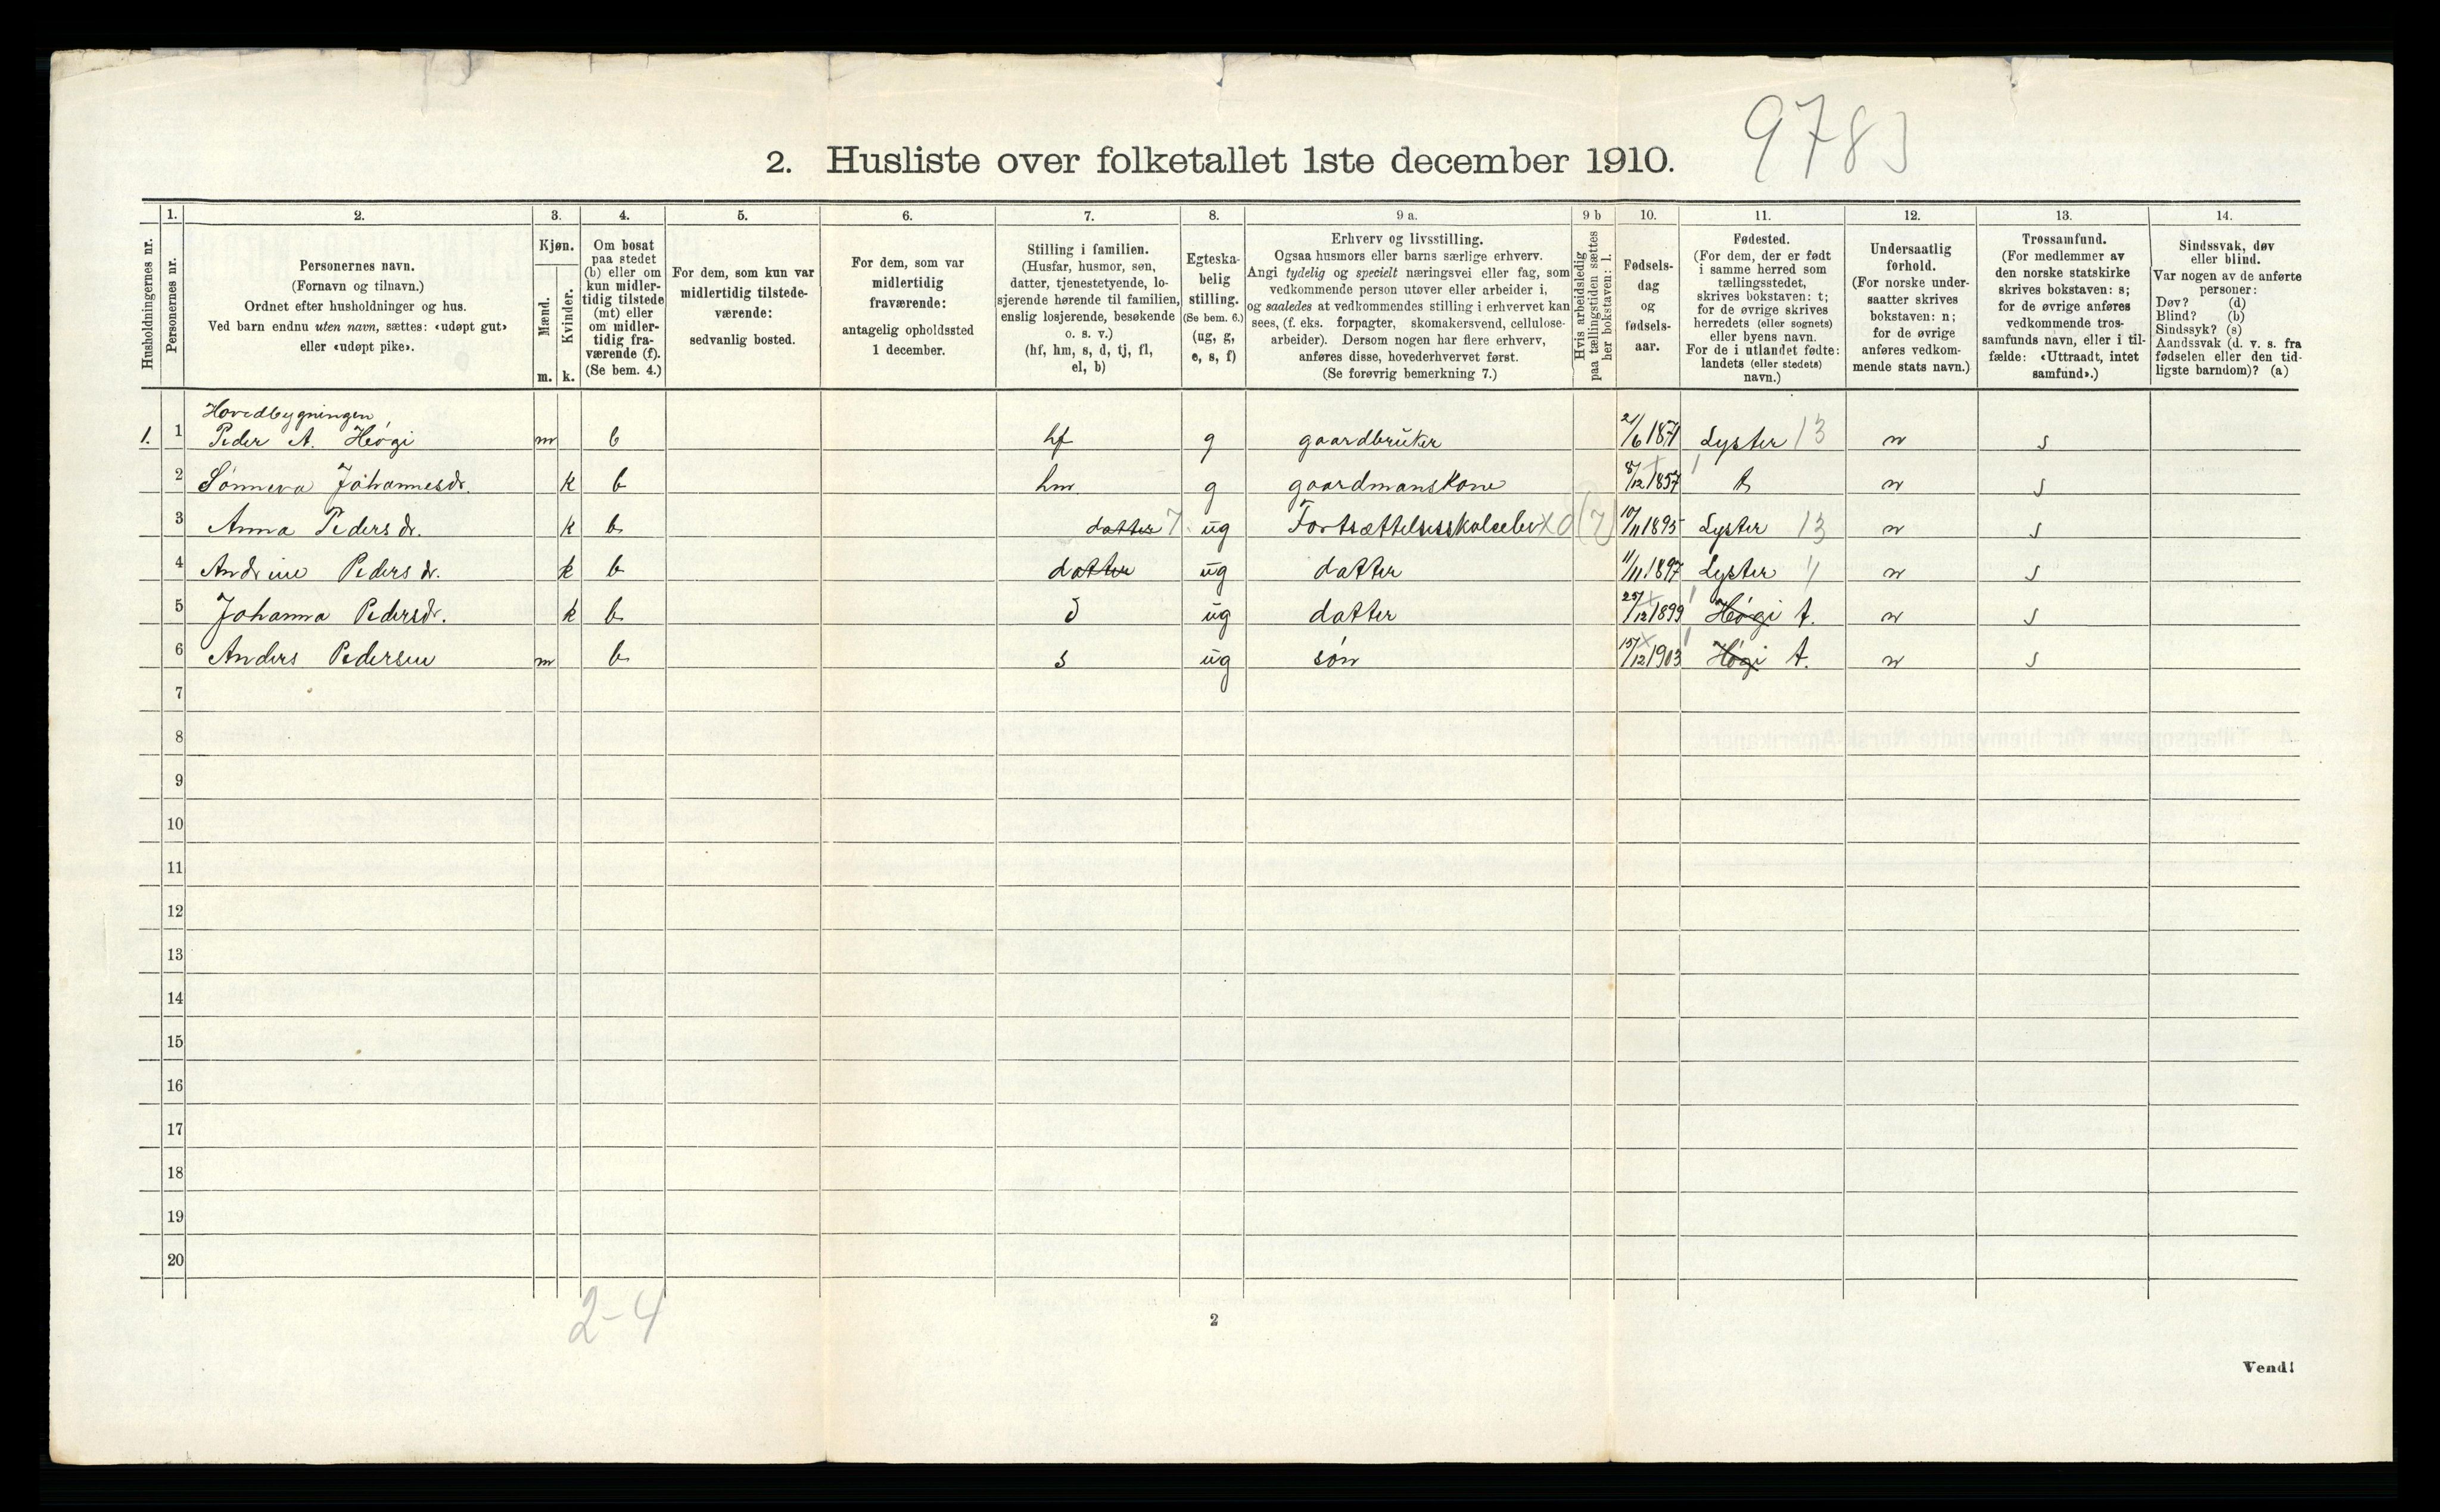 9783
2. Husliste over folketallet 1ste december 1910.
Husholdningernes nr.
1.
Personernes nr.
2.
Personernes navn.
(Fornavn og tilnavn.)
Ordnet efter husholdninger og hus.
Ved barn endnu uten navn, sættes: «udøpt gut»
eller «udøpt pike».
3.
Kjøn.
Mænd.
Kvinder.
m. k.
4.
Om bosat
paa stedet
(b) eller om
kun midler-
tidig tilstede
(mt) eller
om midler-
tidig fra-
værende (f).
(Se bem. 4.)
5.
For dem, som kun var
midlertidig tilstede-
værende:
sedvanlig bosted.
6.
For dem, som var
midlertidig
fraværende:
antagelig opholdssted
1 december.
7.
Stilling i familien.
(Husfar, husmor, søn,
datter, tjenestetyende, lo-
sjerende hørende til familien,
enslig losjerende, besøkende
o. s. v.)
(hf, hm, s, d, tj, fl,
el, b)
8.
Egteska-
belig
stilling.
(Se bem. 6.)
(ug, g,
e, s, f)
9 a.
Erhverv og livsstilling.
Ogsaa husmors eller barns særlige erhverv.
Angi tydelig og specielt næringsvei eller fag, som
vedkommende person utøver eller arbeider i,
og saaledes at vedkommendes stilling i erhvervet kan
sees, (f. eks. forpagter, skomakersvend, cellulose-
arbeider). Dersom nogen har flere erhverv,
anføres disse, hovederhvervet først.
(Se forøvrig bemerkning 7.)
9 b
Hvis arbeidsledig
paa tællingstiden sættes
her bokstaven: l.
10.
Fødsels-
dag
og
fødsels-
aar.
11.
Fødested.
(For dem, der er født
i samme herred som
tællingsstedet,
skrives bokstaven: t;
for de øvrige skrives
herredets (eller sognets)
eller byens navn.
For de i utlandet fødte:
landets (eller stedets)
navn.)
12.
Undersaatlig
forhold.
(For norske under-
saatter skrives
bokstaven: n;
for de øvrige
anføres vedkom-
mende stats navn.)
13.
Trossamfund.
(For medlemmer av
den norske statskirke
skrives bokstaven: s;
for de øvrige anføres
vedkommende tros-
samfunds navn, eller i til-
fælde: «Uttraadt, intet
samfund».)
14.
Sindssvak, døv
eller blind.
Var nogen av de anførte
personer:
Døv? (d)
Blind? (b)
Sindssyk? (s)
Aandssvak (d. v. s. fra
fødselen eller den tid-
ligste barndom)? (a)
Hovedbygningen
1. 1 Peder A. Høgi m b hf g gaardbruker 21/6 1871 Lyster 13 n s
2 Sønneva Johannesdr. k b hm. g gaardmanskone 8/12 1857 t n s
3 Anna Pedersdr. k b datter 7 ug Fortsættelsesskoleelev X0 (7) 10/11 1895 Lyster 13 n s
4 Andrine Pedersdr. k b datter ug datter 11/11 1897 Lyster n s
5 Johanna Pedersdr. k b d ug datter 25/12 1899 Høgi t. n s
6 Anders Pedersen m b s ug søn 15/12 1903 Høgi t. n s
7
8
9
10
11
12
13
14
15
16
17
18
19
20
2-4
2
Vend!